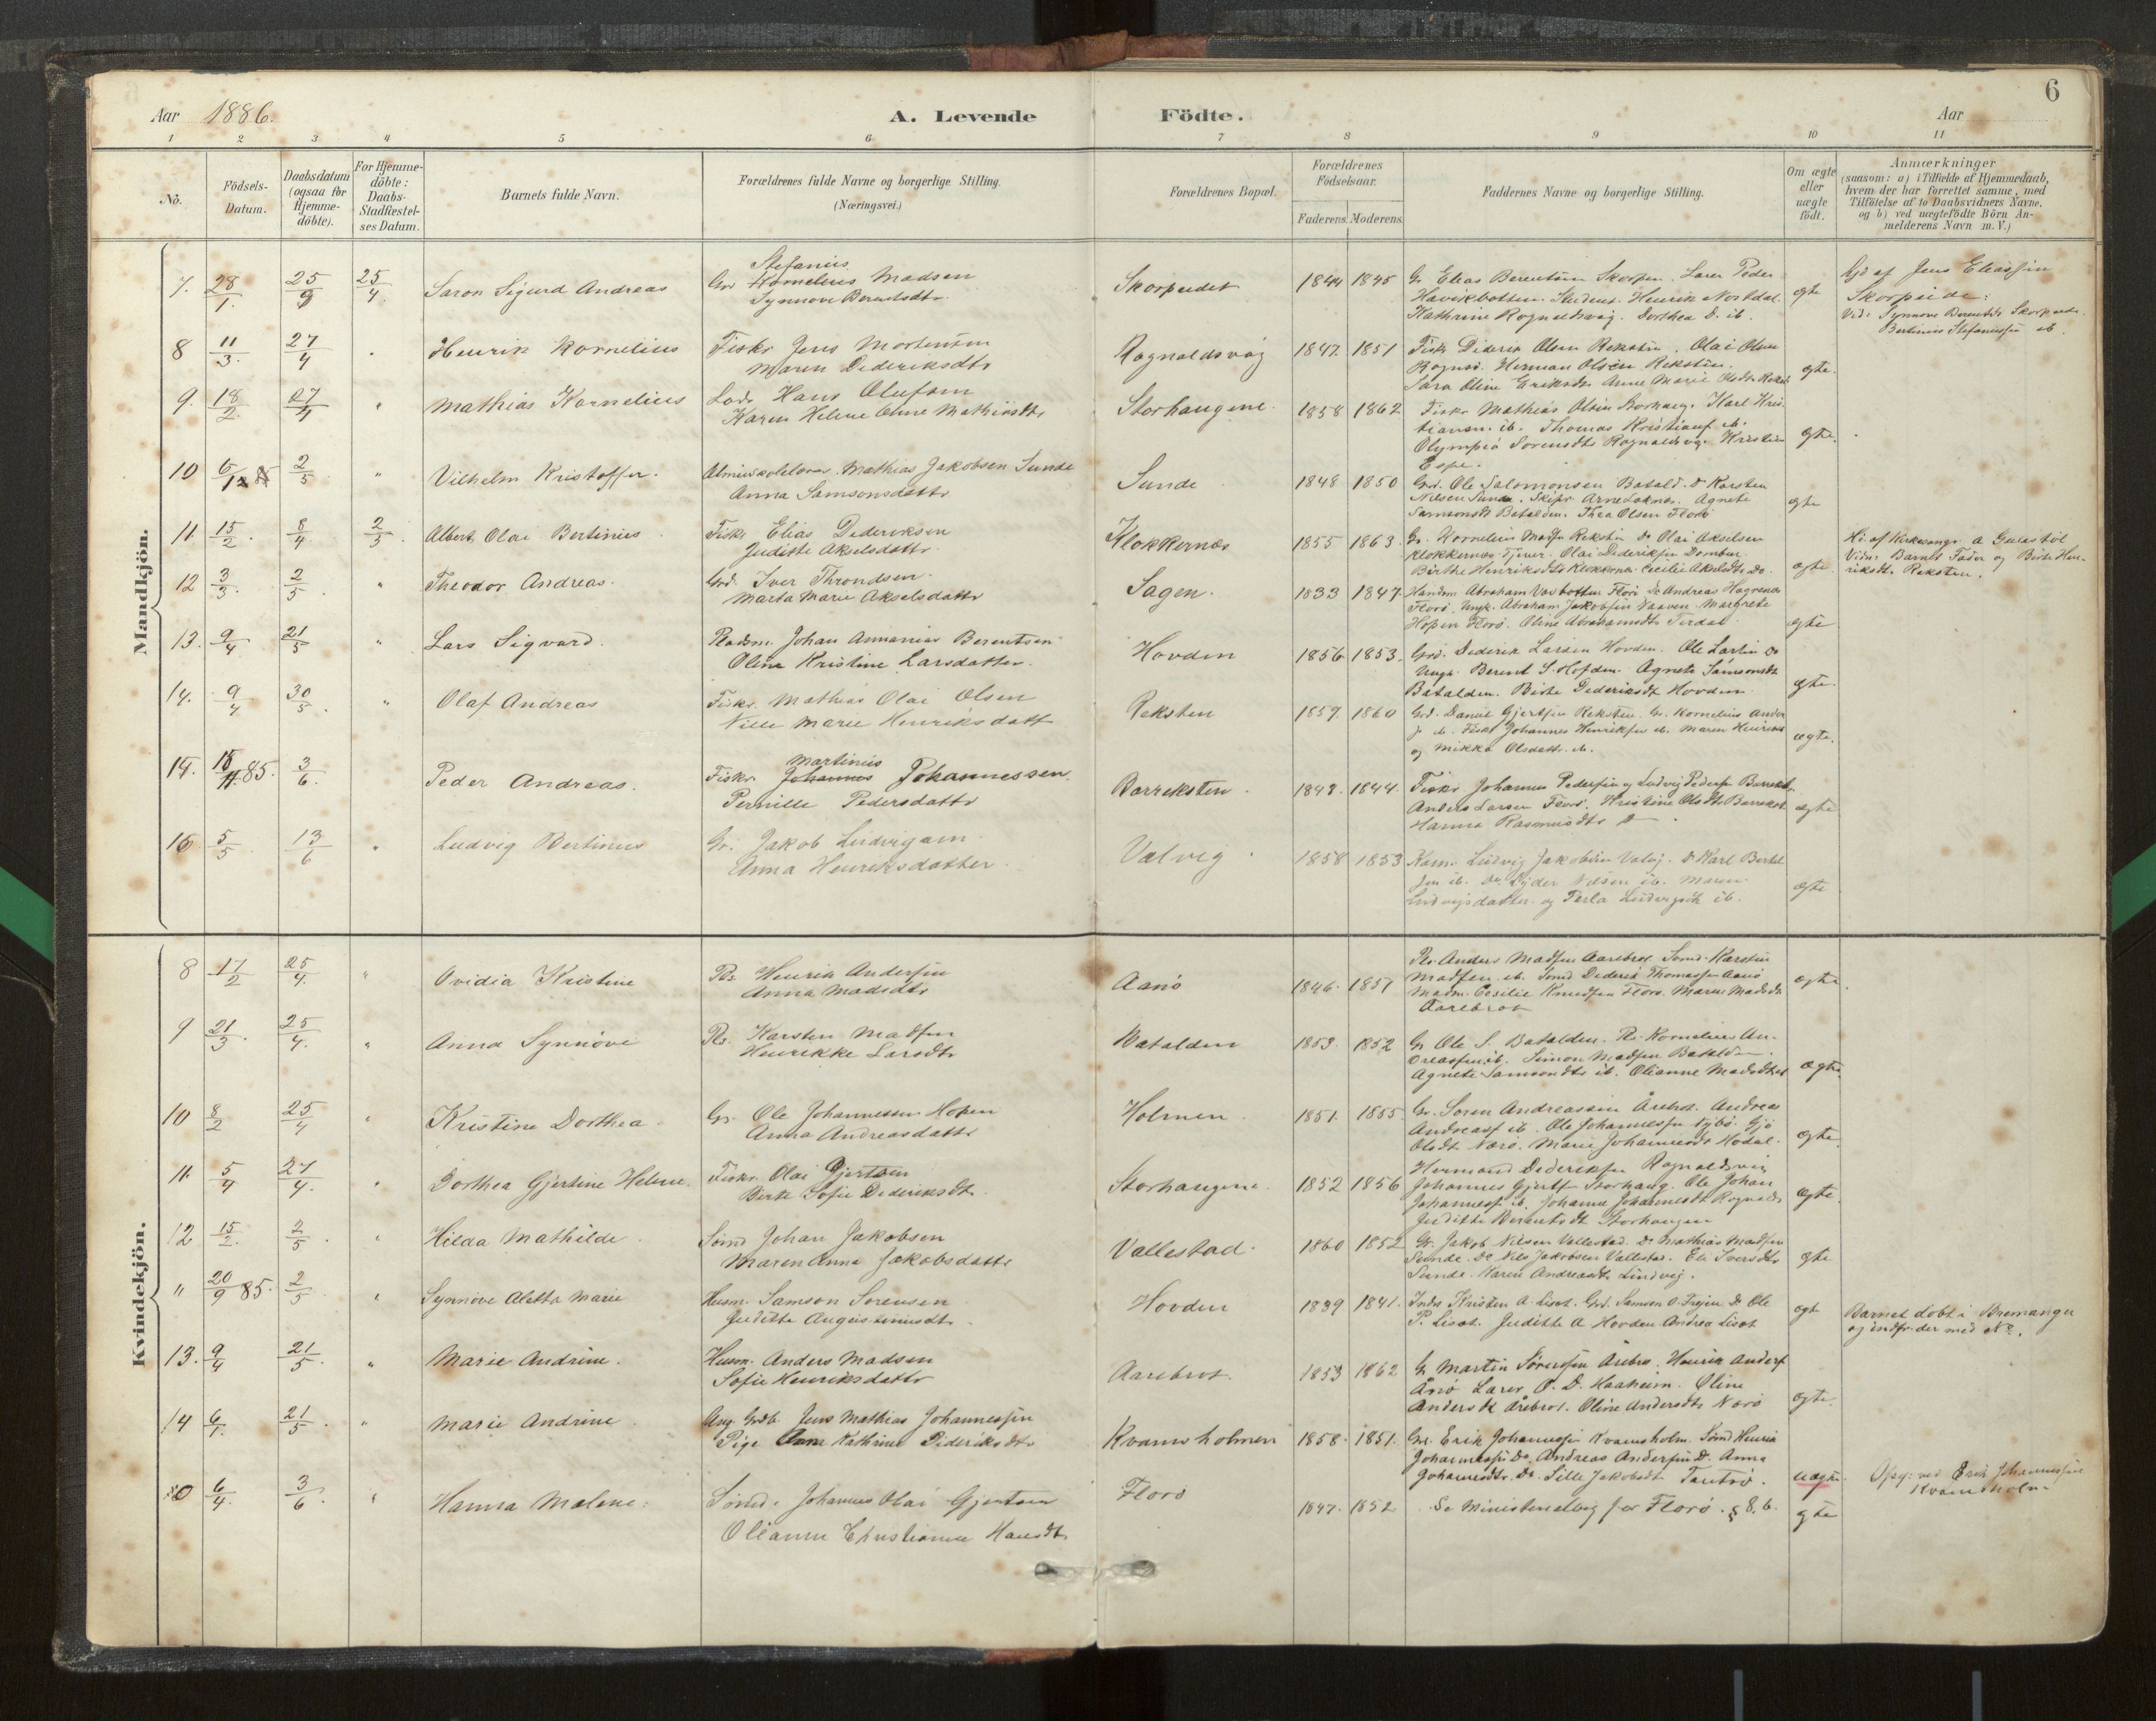 6
Aar 1886.
A. Levende Födte.
Aar
1 2 3 4 5 6 7 8 9 10 11
No.
Födsels-Datum.
Daabsdatum (ogsaa for Hjemme-döbte).
For Hjemme-döbte: Daabs-Stadfæstel-ses Datum.
Barnets fulde Navn.
Forældrenes fulde Navne og borgerlige Stilling. (Næringsvei.)
Forældrenes Bopæl.
Forældrenes Födselsaar.
Faderens. Moderens.
Faddernes Navne og borgerlige Stilling.
Om ægte eller uægte födt.
Anmærkninger (saasom: a) i Tilfælde af Hjemmedaab, hvem der har forrettet samme, med Tilföielse af to Daabsvidners Navne, og b) ved uægtefödte Börn An-melderens Navn m. V.)
Mandkjön.
7. 28/1. 25/9 25/4 Saron Sigurd Andreas
Stefanius
Gr Kornelius Madsen
Synnove Berentsdtr
Skorpeidet 1844 1845
Gr Elias Berentsen Skorpen. Lærer Peder
Havikbotten. Student Henrik Nordal.
Kathrine Rognaldsvåg. Dorthea D. ib.
egte
Hjd af Jens Eliassen
Skorpeide:
Vid: Synnove Berentdtr Skorpeide.
Bertinius Stefaniussen ib.
8 11/3. 27/4 " Henrik Kornelius
Fiskr Jens Mortensen
Maren Dideriksdtr
Rognaldsvåg 1847. 1851
Fiskr Diderik Olsen Reksten. Olai Olsen
Rognsv. Herman Olsen Reksten.
Sara Oline Eriksdtr Anne Marie Olsdtr Rekst
egte.
9. 18/2. 27/4 " Mathias Kornelius
Lods Hans Olufsen
Karen Helene Oline Mathiasdtr
Storhaugene 1858 1862
Fiskr Mathias Olsen Storhaug. Karl Kris-
tiansen. ib. Thomas Kristiansf ib.
Olympia Sorensdtr Rognaldsvg. Kristian
Espe.
egte.
10 6/12 2/5 " Vilhelm Kristoffer.
Almueskolelærer. Mathias Jakobsen Sunde
Anna Samsonsdattr
Sunde 1848 1850
Grd. Ole Salomonsen Batald. D Karsten
Nilsen Sunde. Skipr Arne Loknes. Agnete
Samsonsdt Batalden. Thea Olsen Florö
egte
11. 15/2. 8/4. 2/5. Albert Olai Bertinius
Fiskr Elias Dideriksen
Judithe Akselsdattr.
Klokkernæs 1855 1863.
Gr. Kornelius Madsn Reksten Do Olai Akselsen
Klokkernæs. Tjener. Olai Dideriksen Domben
Birthe Henriksdtr Klokkernes Cecilie Akselsdtr Do.
egte
Hj. af Kirkesangr A Gulastöl
Vidn: Barnets Fader og Birte Hen-
riksdt. Reksten.
12 3/3. 2/5. " Theodor Andreas.
Grd. Iver Throndsen.
Marta Marie Akselsdattr
Sagen. 1833 1847.
Handm Abraham Vasbotten Florö Do Andreas Hagenæs
Florö. Ungk. Abraham Jakobsen Naaven. Margrete
Hopen Florö. Oline Abrahamsdtr Terdal.
egte
13. 9/4 21/5 " Lars Sigvard.
Pladsm. Johan Annanias Berentsen
Oline Kristine Larsdatter.
Hovden 1856 1853.
Grd. Diderik Larsen Hovden. Ole Larsen Do
Ungk. Berent S. Hofden. Agnete Samsonsdt
Batalden. Birte Dideriksdt Hovden.
egte.
14. 9/4 30/5. " Olaf Andreas
Fiskr. Mathias Olai Olsen
Nille Marie Henriksdatt
Reksten 1859. 1860
Grd. Daniel Gjertsen Reksten. Gr. Kornelius Ander
s. ib. Fiskr Johannes Henriksen ib. Maren Henriksd
og Mikka Olsdattr. ib.
ægte.
14. 18/11. 85. 3/6. Peder Andreas.
Martinius
Fiskr. Johannes Johannessen.
Pernille Pedersdattr
Barreksten. 1848. 1844.
Fiskr Johannes Pedersen og Ludvig Pedersen Barrekst.
Anders Larsen Florö. Kristine Olsdtr Barrekst
Hanna Rasmusdtr D
ægte
16 5/5. 13/6 " Ludvig Bertinius
Gr. Jakob Ludvigsen
Anna Henriksdatter.
Valvig. 1858 1853
Kaarm. Ludvig Jakobsen Valvg. D Karl Bertel
sen ib. Do Peder Nilsen ib. Maren
Ludvigsdatter og Perla Ludvigsdt ib.
ægte
Kvindekjön.
8 17/2 25/4. " Ovidia Kristine
Pls. Henrik Andersen
Anna Madsdtr
Aanö 1846. 1851
Pls. Anders Madsen Aarebrot Sömd. Karsten
Madsen. ib. Sömd Diderik Thomassen Aanö
Madm. Cecilie Knudsen Florö. Marie Madsdtr
Aarebrot
ægte.
9 21/3. 25/4. " Anna Synnöve
Pls. Karsten Madsen
Henrikke Larsdtr
Batalden 1853. 1852
Gr Ole S. Batalden. Pls. Kornelius An-
dreassen ib. Simon Madsen Batalden.
Agnete Samsondtr ib. Olianne Madsdtr
ægte.
10 8/2 25/4 " Kristine Dorthea.
Gr. Ole Johannessen Hopen
Anna Andreasdattr
Holmen. 1851. 1855
Gr. Soren Andreassen Årebrot. Andreas
Andreasf ib. Ole Johannessen Nybö. Gjö
Olsdt Nærö. Marie Johannesdtr Hodal.
egte.
11. 5/4 27/4. " Dorthea Gjertine Helene.
Fiskr. Olai Gjertsen
Birte Sofie Dideriksdt.
Storhaugene. 1852 1856
Hermand Dideriksen Rognaldsvg
Johannes Gjertsf Storhaug. Ole Johan
Johannesf ib. Johanne Johannesdt Rognalds
Judithe Berentsdt Storhaugen
ægte.
12 15/2. 2/5. " Hilda Mathilde.
Sömd Johan Jakobsen
Maren Anna Jakobsdattr
Vallestad. 1860 1852
Gr. Jakob Nilsen Vallestad. Do Mathias Madsen
Sunde. Do Nils Jakobsen Vallestad. Eli Iversdtr
Sunde. Karen Andreasdtr Lindvig.
gte
" 20/9 85. 2/5. " Synnöve Aletta Marie
Husm. Samson Sorensen
Juditte Augustinusdt.
Hovden 1839 1841.
Indr Kristen A. Lisæt. Grd. Samson O. Frejen Do Ole
P. Lisæt. Juditte A Hovden Andrea Lisæt
egte
Barnet döbt i Bremanger
og indfr. der med No.
13. 9/4 21/5. " Marie Andrine.
Husm. Anders Madsen
Sofie Henriksdattr
Aarebrot. 1853 1862
Gr Martin Sörensen Årebro. Henrik Andersf
Ånö Lærer O. D. Haaheim. Oline
Andersdt Årebrot. Oline Andersdtr Nærö
ægte.
14 6/1. 21/5. " Marie Andrine.
Ung. Grdb. Jens Mathias Johannessen
Pige Anna Kathrine Dideriksdtr
Kvamsholmen 1858. 1851.
Gr. Erik Johannessen Kvamsholm. Sömd Henrik
Johannessen Do. Andreas Andersen D. Anna
Johannesdtr. Do. Sille Jakobsdt Tantrö.
uægte.
Opg: ved Erik Johannessen
Kvamsholm
20 6/4. 3/6. " Hanna Malene.
Sömd. Johannes Olai Gjertsen
Olianne Christianne Hansdtr
Florö 1847. 1852
Se Ministerialbog for Florö. § 8. 6.
gte